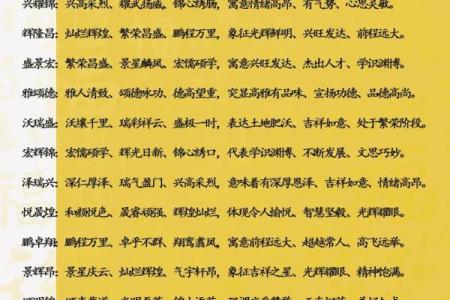 兴耀锦: 兴高采烈、耀武扬威、锦心绣肠，寓意情绪高昂、有气势、心思灵敏。
辉隆昌: 灿烂辉煌、繁荣昌盛、鹏程万里，象征光辉鲜明、兴旺发达、前程远大。
盛景宏: 繁荣昌盛、景星麟凤、宏儒硕学，寓意兴旺发达、杰出人才、学识渊博。
雅颂德: 雅人清致、颂德咏功、德高望重，突显高雅有品味、宣扬功德、品德高尚。
沃瑞盛: 沃壤千里、瑞彩祥云、盛极一时，表达土地肥沃、吉祥如意、处于繁荣阶段。
宏辉锦: 宏儒硕学、辉光日新、锦心绣口，代表学识渊博、不断发展、文思巧妙。
泽瑞兴: 深仁厚泽、瑞气盈门、兴高采烈，意味着有深厚恩泽、吉祥如意、情绪高昂。
悦晟煌: 和颜悦色、晟睿顽强、辉煌灿烂，体现令人愉悦、智慧坚毅、光辉耀眼。
鹏卓翔: 鹏程万里、卓乎不群、翔鸾翥凤，寓意前程远大、超越常人、高飞远举。
景辉昂: 景星庆云、灿烂辉煌、气宇轩昂，象征吉祥之星、光辉耀眼、精神饱满。